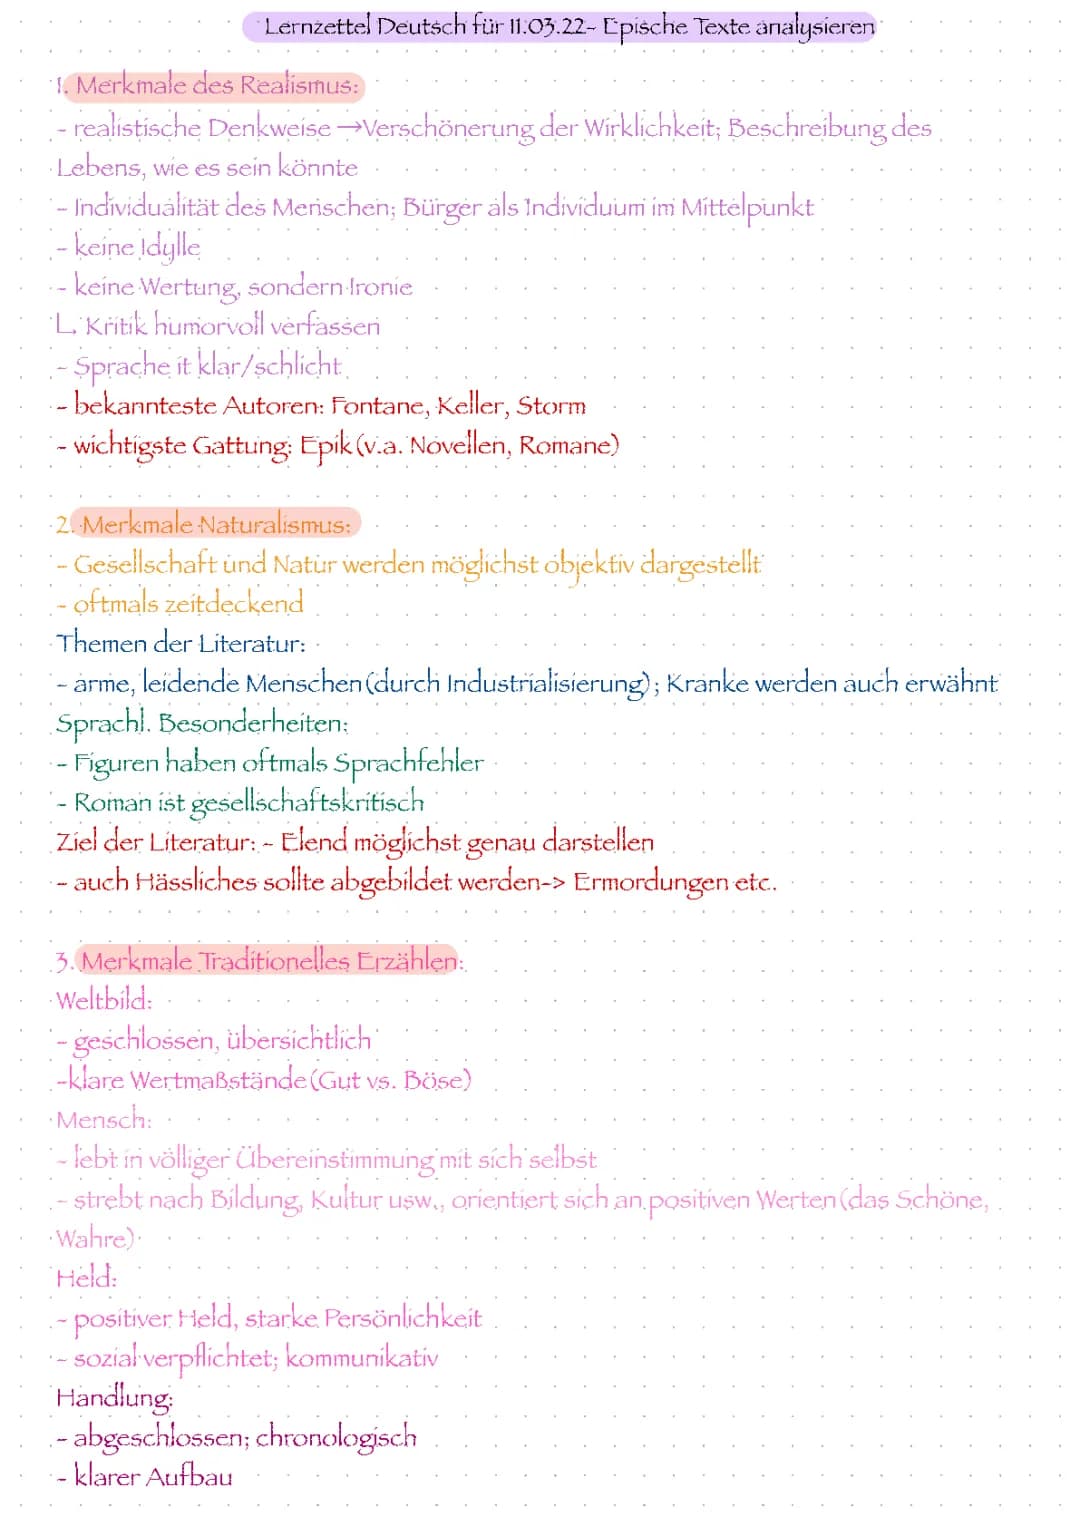 Lernzettel Deutsch für 11.03.22- Epische Texte analysieren
1. Merkmale des Realismus:
- realistische Denkweise →Verschönerung der Wirklichkeit; Beschreibung des
Lebens, wie es sein könnte
- Individualität des Menschen; Bürger als Individuum im Mittelpunkt
- keine Idylle
- keine Wertung, sondern Ironie
L Kritik humorvoll verfassen
- Sprache it klar/schlicht
- bekannteste Autoren: Fontane, Keller, Storm
- wichtigste Gattung: Epik (v.a. Novellen, Romane)
2. Merkmale Naturalismus:
- Gesellschaft und Natur werden möglichst objektiv dargestellt
- oftmals zeitdeckend
Themen der Literatur:
- arme, leidende Menschen (durch Industrialisierung); Kranke werden auch erwähnt
Sprachl. Besonderheiten:
- Figuren haben oftmals Sprachfehler
- Roman ist gesellschaftskritisch
Ziel der Literatur: - Elend möglichst genau darstellen
- auch Hässliches sollte abgebildet werden-> Ermordungen etc.
3. Merkmale Traditionelles Erzählen:
Weltbild:
- geschlossen, übersichtlich
-klare Wertmaßstände (Gut vs. Böse)
Mensch:
- lebt in völliger Übereinstimmung mit sich selbst
- strebt nach Bildung, Kultur usw., orientiert sich an positiven Werten (das Schöne,
Wahre)
Held:
- positiver Held, starke Persönlichkeit
- sozial verpflichtet; kommunikativ
Handlung:
- abgeschlossen; chronologisch
- klarer Aufbau